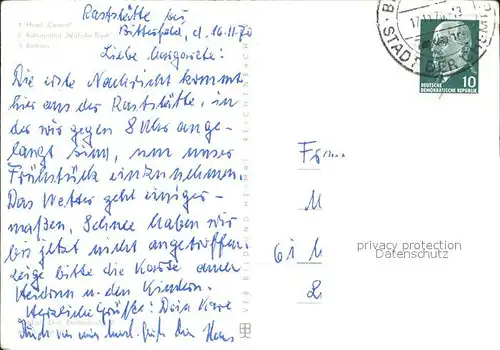 1 Hotel „Central"
2 Kulturpalast „Wilhelm Pieck"
3 Rathaus
Raststätte bei
Bitterfeld, d. 16.11.70
Liebe Margarete!
Die erste Nachricht kommt
hier aus der Raststätte, in
der wir gegen 8 Uhr ange-
langt sind, um unser
Frühstück einzunehmen.
Das Wetter geht einiger-
maßen, Schnee haben wir
bis jetzt nicht angetroffen.
Zeige bitte die Karte auch
Heidrun u. den Kindern.
Herzliche Grüße! Dein Kare
Auch von mir herzl. Grüße Dein Hans
VEB BILD UND HEIMAT REICHENBACH
17.11.70-13
STADT DER
10
DEUTSCHE
DEMOKRATISCHE REPUBLIK
Fr
M
privacy protection
Datenschutz